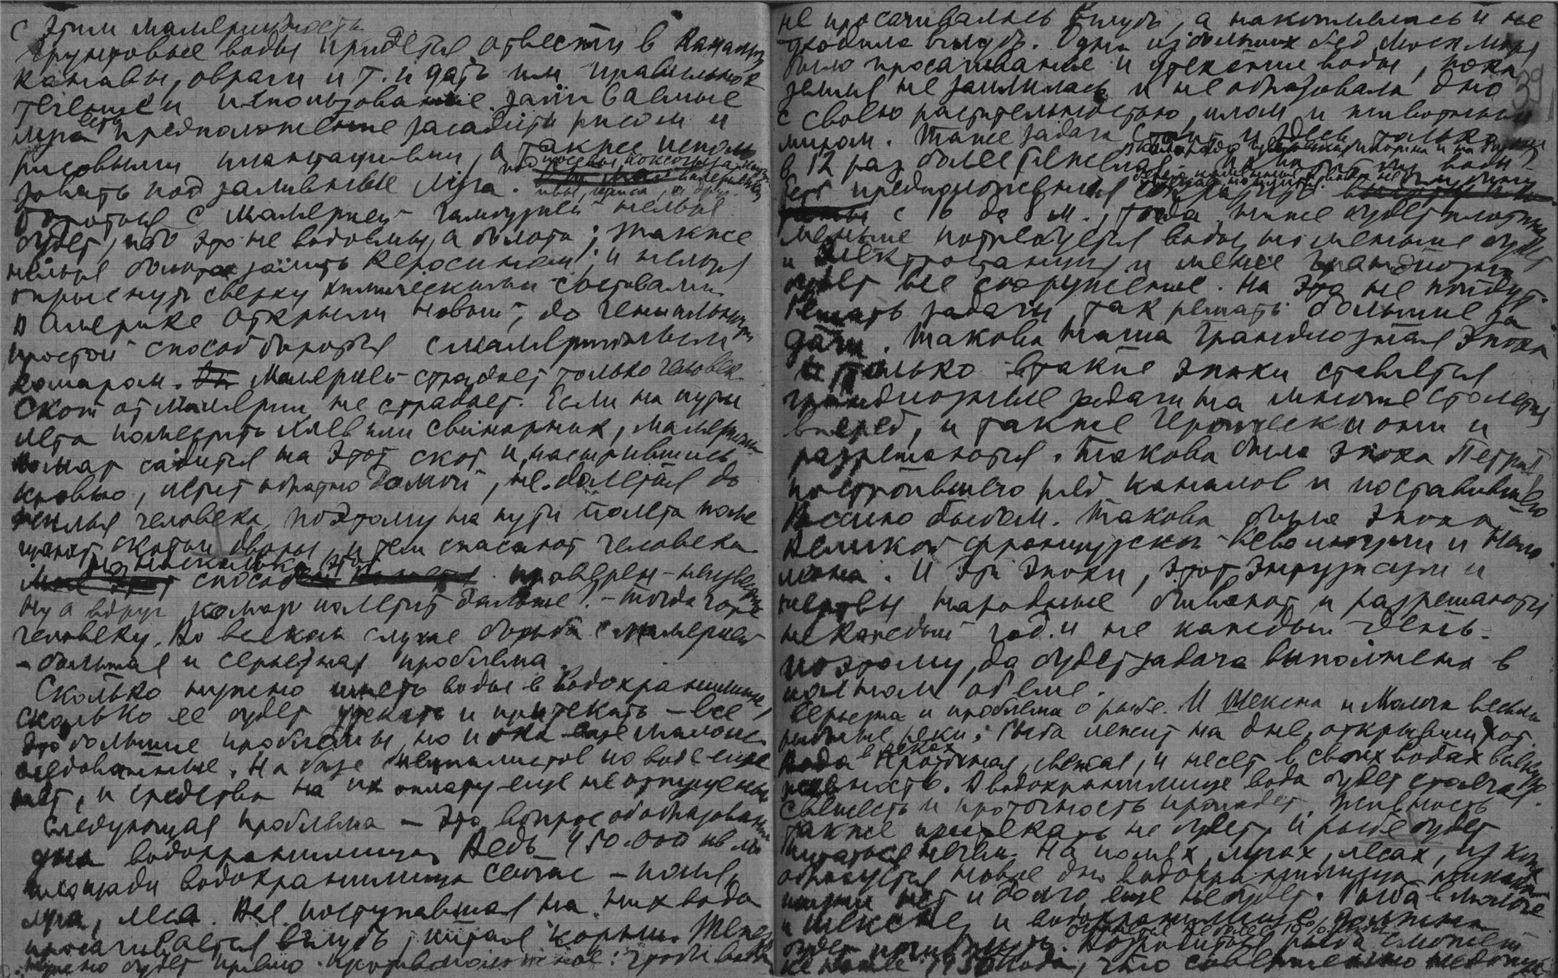 с этим малярийность
грунтовые воды придется отвести в каналы,
канавы, овраги и т.п. дать им правильное
течение и использование. Заливаемые
луга предположение засадить рисом и
рисовыми плантациями, а также исполь
зовать под заливные луга.
бороться с малярией нельзя
будет, ибо это не водоемы, а болота; также
нельзя болота залить керосином, и нельзя
опрыснуть сверху химическими составами.
В Америке открыли новый, до гениальности
простой способ бороться с малярийным
комаром. Малярией страдает только человек
скот от малярии не страдает. Если на пути
лета поместить хлев или свинарник, малярийный
комар садится на этот скот и, насытившись
кровью, летит обратно домой, не долетая до
жилья человека, поэтому на пути полета поме
щают скотные дворы и тем спасают человека.
способ проверен - неизвестно
ну а вдруг комар полетит дальше? - тогда горе
человеку. Во всяком случае борьба с малярией
- большая и серьезная проблема.
Сколько нужно иметь воды в водохранилище,
сколько ее будет утекать и притекать - все
это большие проблемы, но пока еще мало ис
следованные. На базе специалистов по воде еще
нет, и средства на их оплату еще не отпущены.
Следующая проблема - это вопрос об образовании
дна водохранилища. Ведь 450.000 кв. м.
площади водохранилища сейчас - поля,
луга, леса. Вся поступавшая на них вода
просачивается вглубь, питая корни. Теперь
нужно будет прямо противоположное: чтобы вода
не просачивалась вглубь, а накоплялась и не
уходила вглубь. Одна из больших бед Москморя
было просачивание и утекание воды, пока
земля не заилилась и не образовала дно
с своею растительностью, илом и животным
миром. Такая задача стоит и здесь, только
в 12 раз более тяжелая.
предположения
с 16 до 8 м., тогда ниже будет плотина
меньше потребуется воды, но меньше будет
и электростанция и менее грандиозны
будет все сооружение. На это не пойдут
Решать задачи, так решать большие за
дачи. Такова наша грандиозная эпоха
и только в такие эпохи ставятся
грандиозные задачи на многие столетия
вперед, и также героически они и
разрешаются. Такова была эпоха Петра I
построившего ряд каналов и поставившего
Россию дыбом. Такова была эпоха
Великой французской революции и Напо
леона. И эти эпохи, этот энтузиазм и
жертвы народные бывают и разрешаются
не каждый год и не каждый день -
поэтому, да будет задача выполнена в
полном объеме.
Серьезна и проблема о рыбе. И Шексна и Молога весьма
рыбные реки; рыба лежит на дне, открывши рот
вода в реках проточная, свежая, и несет в своих водах всякую
живность. В водохранилище вода будет стоячая.
Свежесть и проточность пропадет, живность
также притекать не будет, и рыбе будет
питаться нечем. На полях, лугах, лесах, из коих
образуется новое дно водохранилища, никакой
пищи нет и долго еще не будет. Рыба в Мологе
и Шексне, и водохранилище должна
будет погибнуть. рыба сможет
не ранее 1950 года, что совершенно